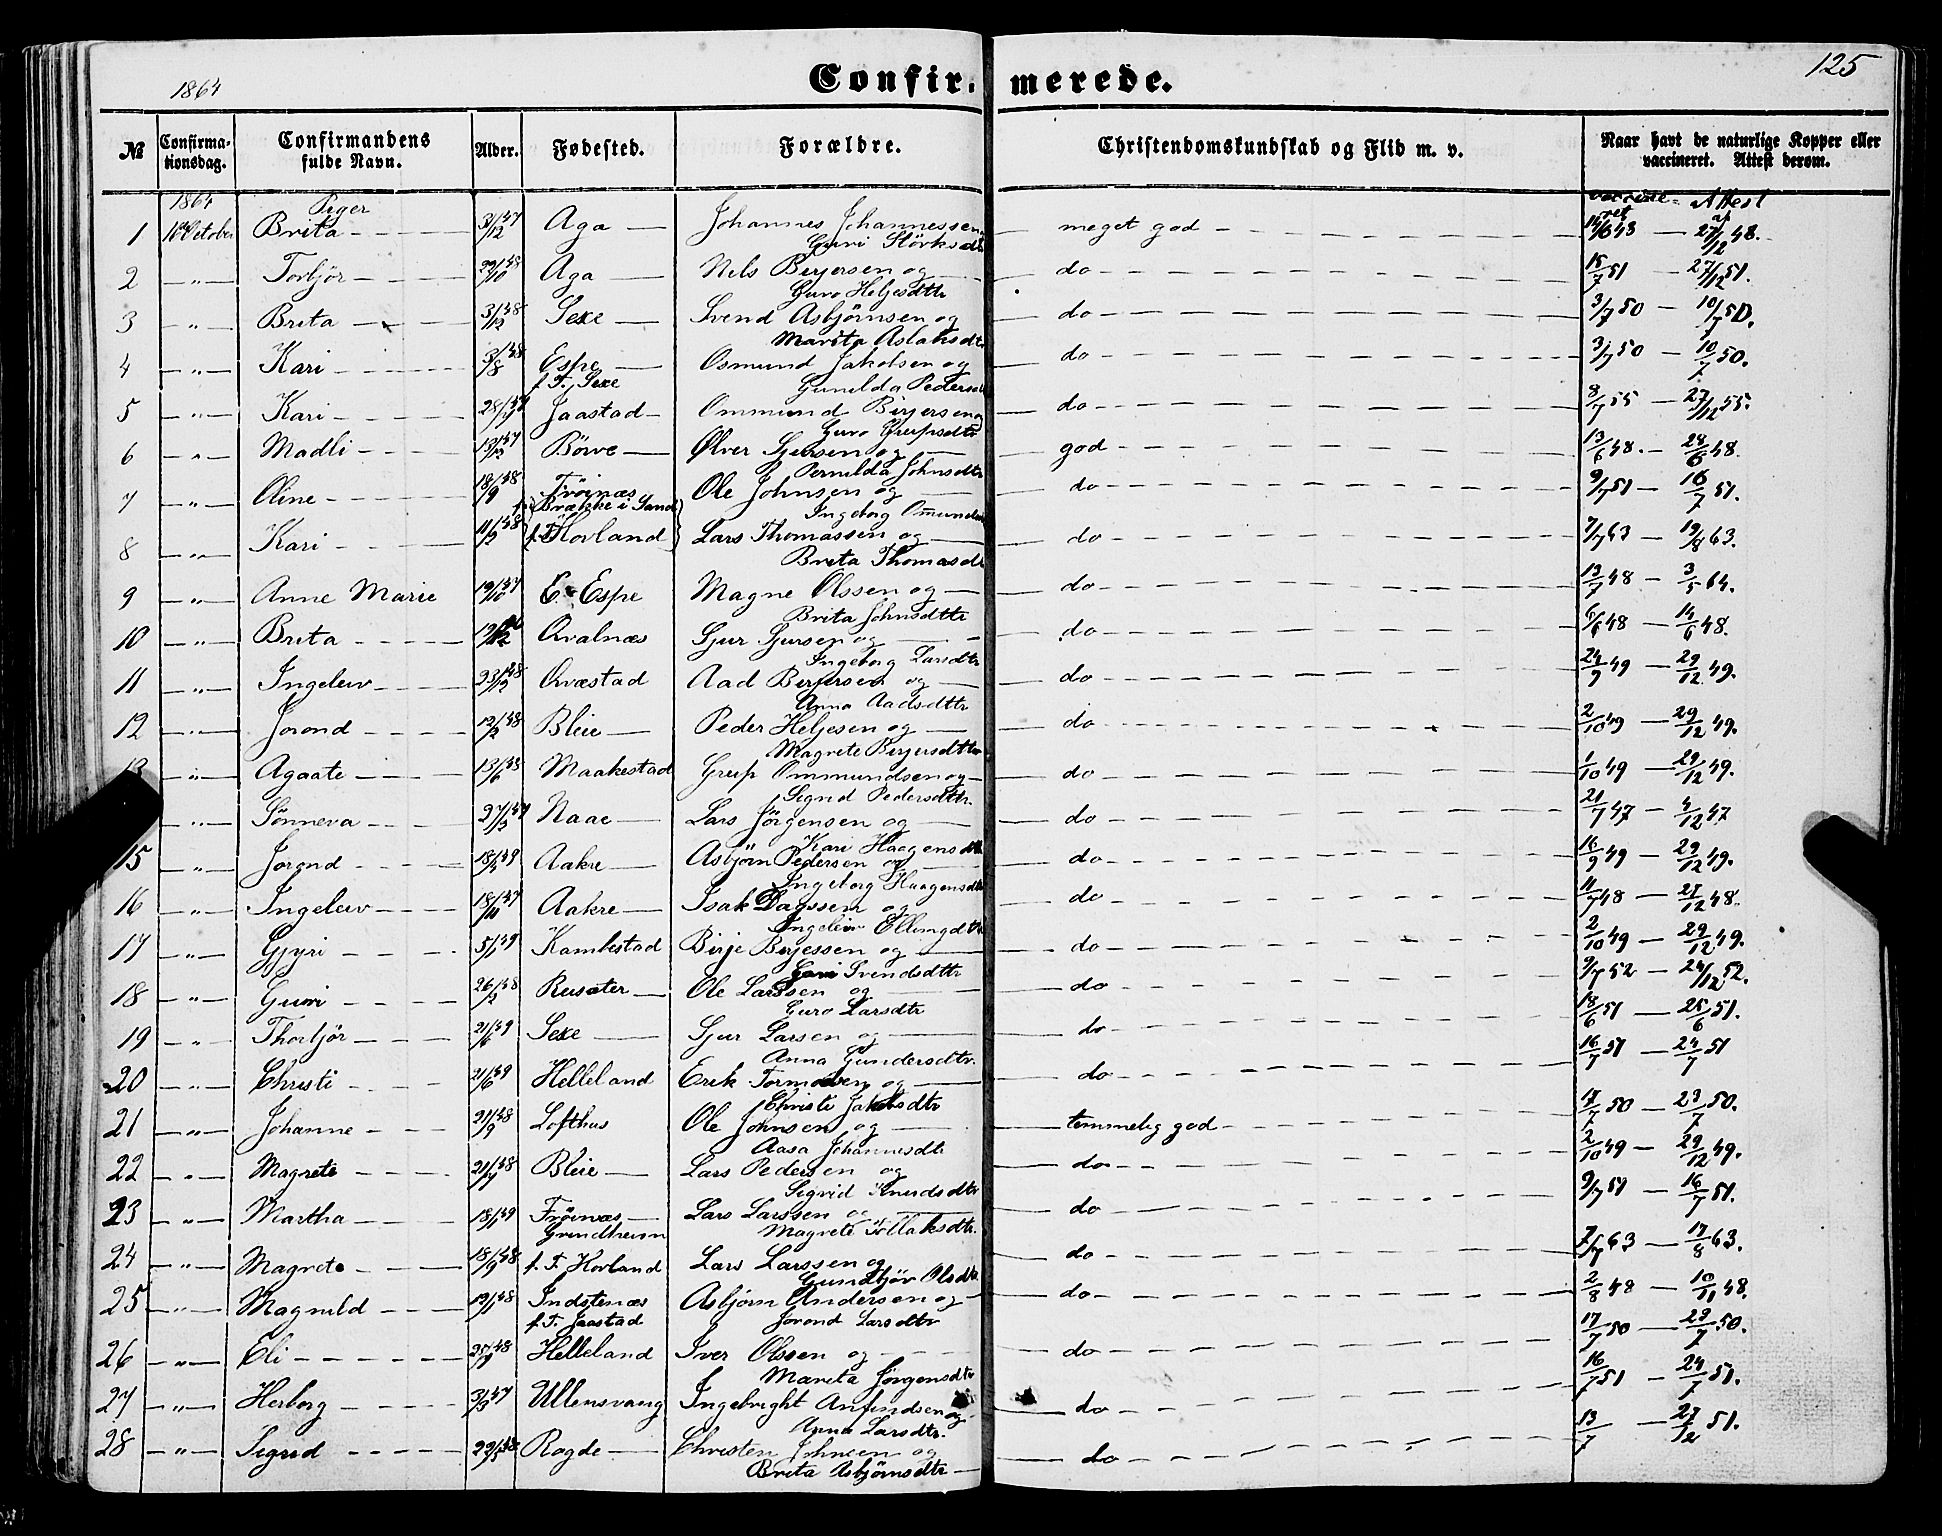 1864
Confir- merede.
125
No
Confirmationsdag.
Confirmandens fulde Navn.
Alder.
Fødested.
Forældre.
Christendomskundskab og Flid m. v.
Naar havt de naturlige Kopper eller vaccineret. Attest derom.
1864 Piger
1 October Brita Aga Johannes Johannessen meget god
Guri
2 Torbjør Aga Nels Berjersen og do 15/7 51 — 27/12 51.
Guro Heljesdtr
3 Brita 3/12 48 Sexe Svend Asbjørnsen og do 3/7 50 — 10/7 50.
Marita Aslaksdtr
4 Kari Espe Osmund Jakobsen og do 3/7 50 — 10/7 50.
f. F. Sexe Gunilda Pedersdtr
5 Kari Jaastad Ommund Berjersen og do 8/7 55 — 27/12 55.
Guro
6 Madli Børve Ølver Sjursen og god 13/6 48. — 28/6 48.
Pernilda Johnsdtr
7 Oline 18/9 48 Frøinæs Ole Johnsen og do 9/7 51 — 16/7 51.
Brække i Sand Ingeborg
8 Kari 11/2 48 f. F. Hovland Lars Thomassen og do 7/7 63 — 19/8 63.
Brita Thomasdtr
9 Anne Marie 19/10 47 E. Espe Magne Olssen og do 13/7 48 — 3/5 64.
Brita Johnsdtr
10 Brita Qvalnæs Sjur Sjursen og do 6/6 48 — 14/6 48.
Ingeborg Larsdtr
11 Ingeleiv Qvæstad Aad Berjersen og do 24/9 49 — 29/12 49.
Anna Aadsdtr
12 Jorond 12/2 48 Bleie Peder Heljesen og do 2/10 49 — 29/12 49.
Magrete Berjersdtr
13 Agaate Maakestad Greip Ommundsen og do 1/10 49 — 29/12 49.
Sigrid Pedersdtr.
Sønneva Naae Lars Jørgensen og do 21/7 47 — 4/12 47
Kari Haagensdtr
15 Jorond Aakre Asbjørn Pedersen og do 16/9 49 — 29/12 49.
Ingeborg Haagensdtr
16 Ingeleiv 18/10 47 Aakre Isak Dagssen og do 11/7 48 — 27/12 48.
Ingeleiv Ellingdtr
17 Gjyri 5/1 49 Kambestad Birje Berjessen og do 2/10 49 — 29/12 49.
Guri Svendsdtr
18 Guri 26/2 48 Rusæter Ole Larssen og do 9/7 52 — 24/12 52.
Guro Larsdtr
19 Thorbjør 21/6 49 Sexe Sjur Larsen og do 18/6 51 — 25/6 51.
Anna Gundersdtr.
20 Christi 21/6 49 Helleland Erik Tormodsen og do 16/7 51 — 24/7 51
Christi Jakobsdtr
21 Johanne 21/9 48 Lofthus Ole Johnsen og temmelig god 17/7 50 — 23/7 50.
Aasa Johannesdtr
22 Magrete 21/9 48 Bleie Lars Pedersen og do 2/10 49 — 29/12 49.
Sigrid Knudsdtr
23 Martha 18/1 49 Frøinæs Lars Larssen og do 9/7 51 — 16/7 51.
Grindheim Magrete
24 Magrete 18/9 48 f. F. Hovland Lars Larssen og do 7/7 63 — 17/8 63.
Gunbjør Olsdtr
25 Magnild 19/1 48 Indstenæs Asbjørn Andersen og do 2/8 48 — 10/11 48.
f. F. Jaastad Jorond Larsdtr
26 Eli Helleland Iver Olssen og do 17/7 50 — 23/7 50.
Marita Jørgensdtr
27 Herborg 3/3 47 Ullensvang Ingebright Anfindsen og do 16/7 51 — 24/7 51.
Anna Larsdtr.
28 Sigrid Rogde Christen Johnsen og do 13/7 — 27/2 51.
Brita Asbjørnsdtr